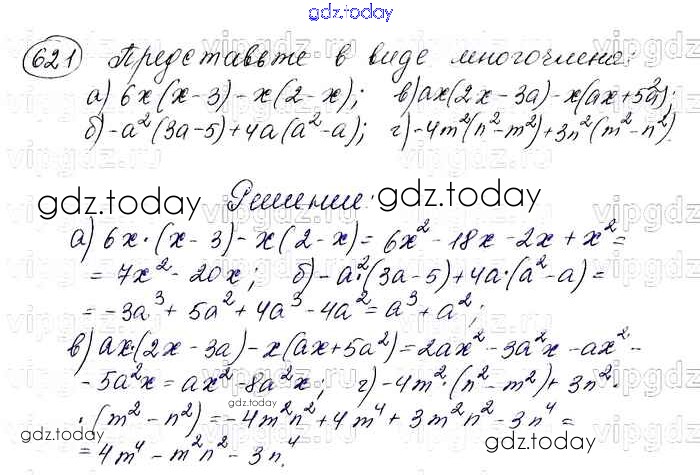 gdz.today
621 Представьте в виде многочлена:
а) 6x(x-3)-x(2-x); в) ax(2x-3a)-x(ax+5a²);
б) -a²(3a-5)+4a(a²-a); г) -4m²(n²-m²)+3n²(m²-n²)
gdz.today Решение: gdz.today
а) 6x·(x-3)-x(2-x)=6x²-18x-2x+x²=
=7x²-20x; б) -a²·(3a-5)+4a·(a²-a)=
=-3a³+5a²+4a³-4a²=a³+a²;
в) ax·(2x-3a)-x(ax+5a²)=2ax²-3a²x-ax²-
-5a²x=ax²-8a²x; г) -4m²·(n²-m²)+3n²·
gdz.today
·(m²-n²)=-4m²n²+4m⁴+3m²n²-3n⁴=
gdz.today gdz.today
=4m⁴-m²n²-3n⁴.